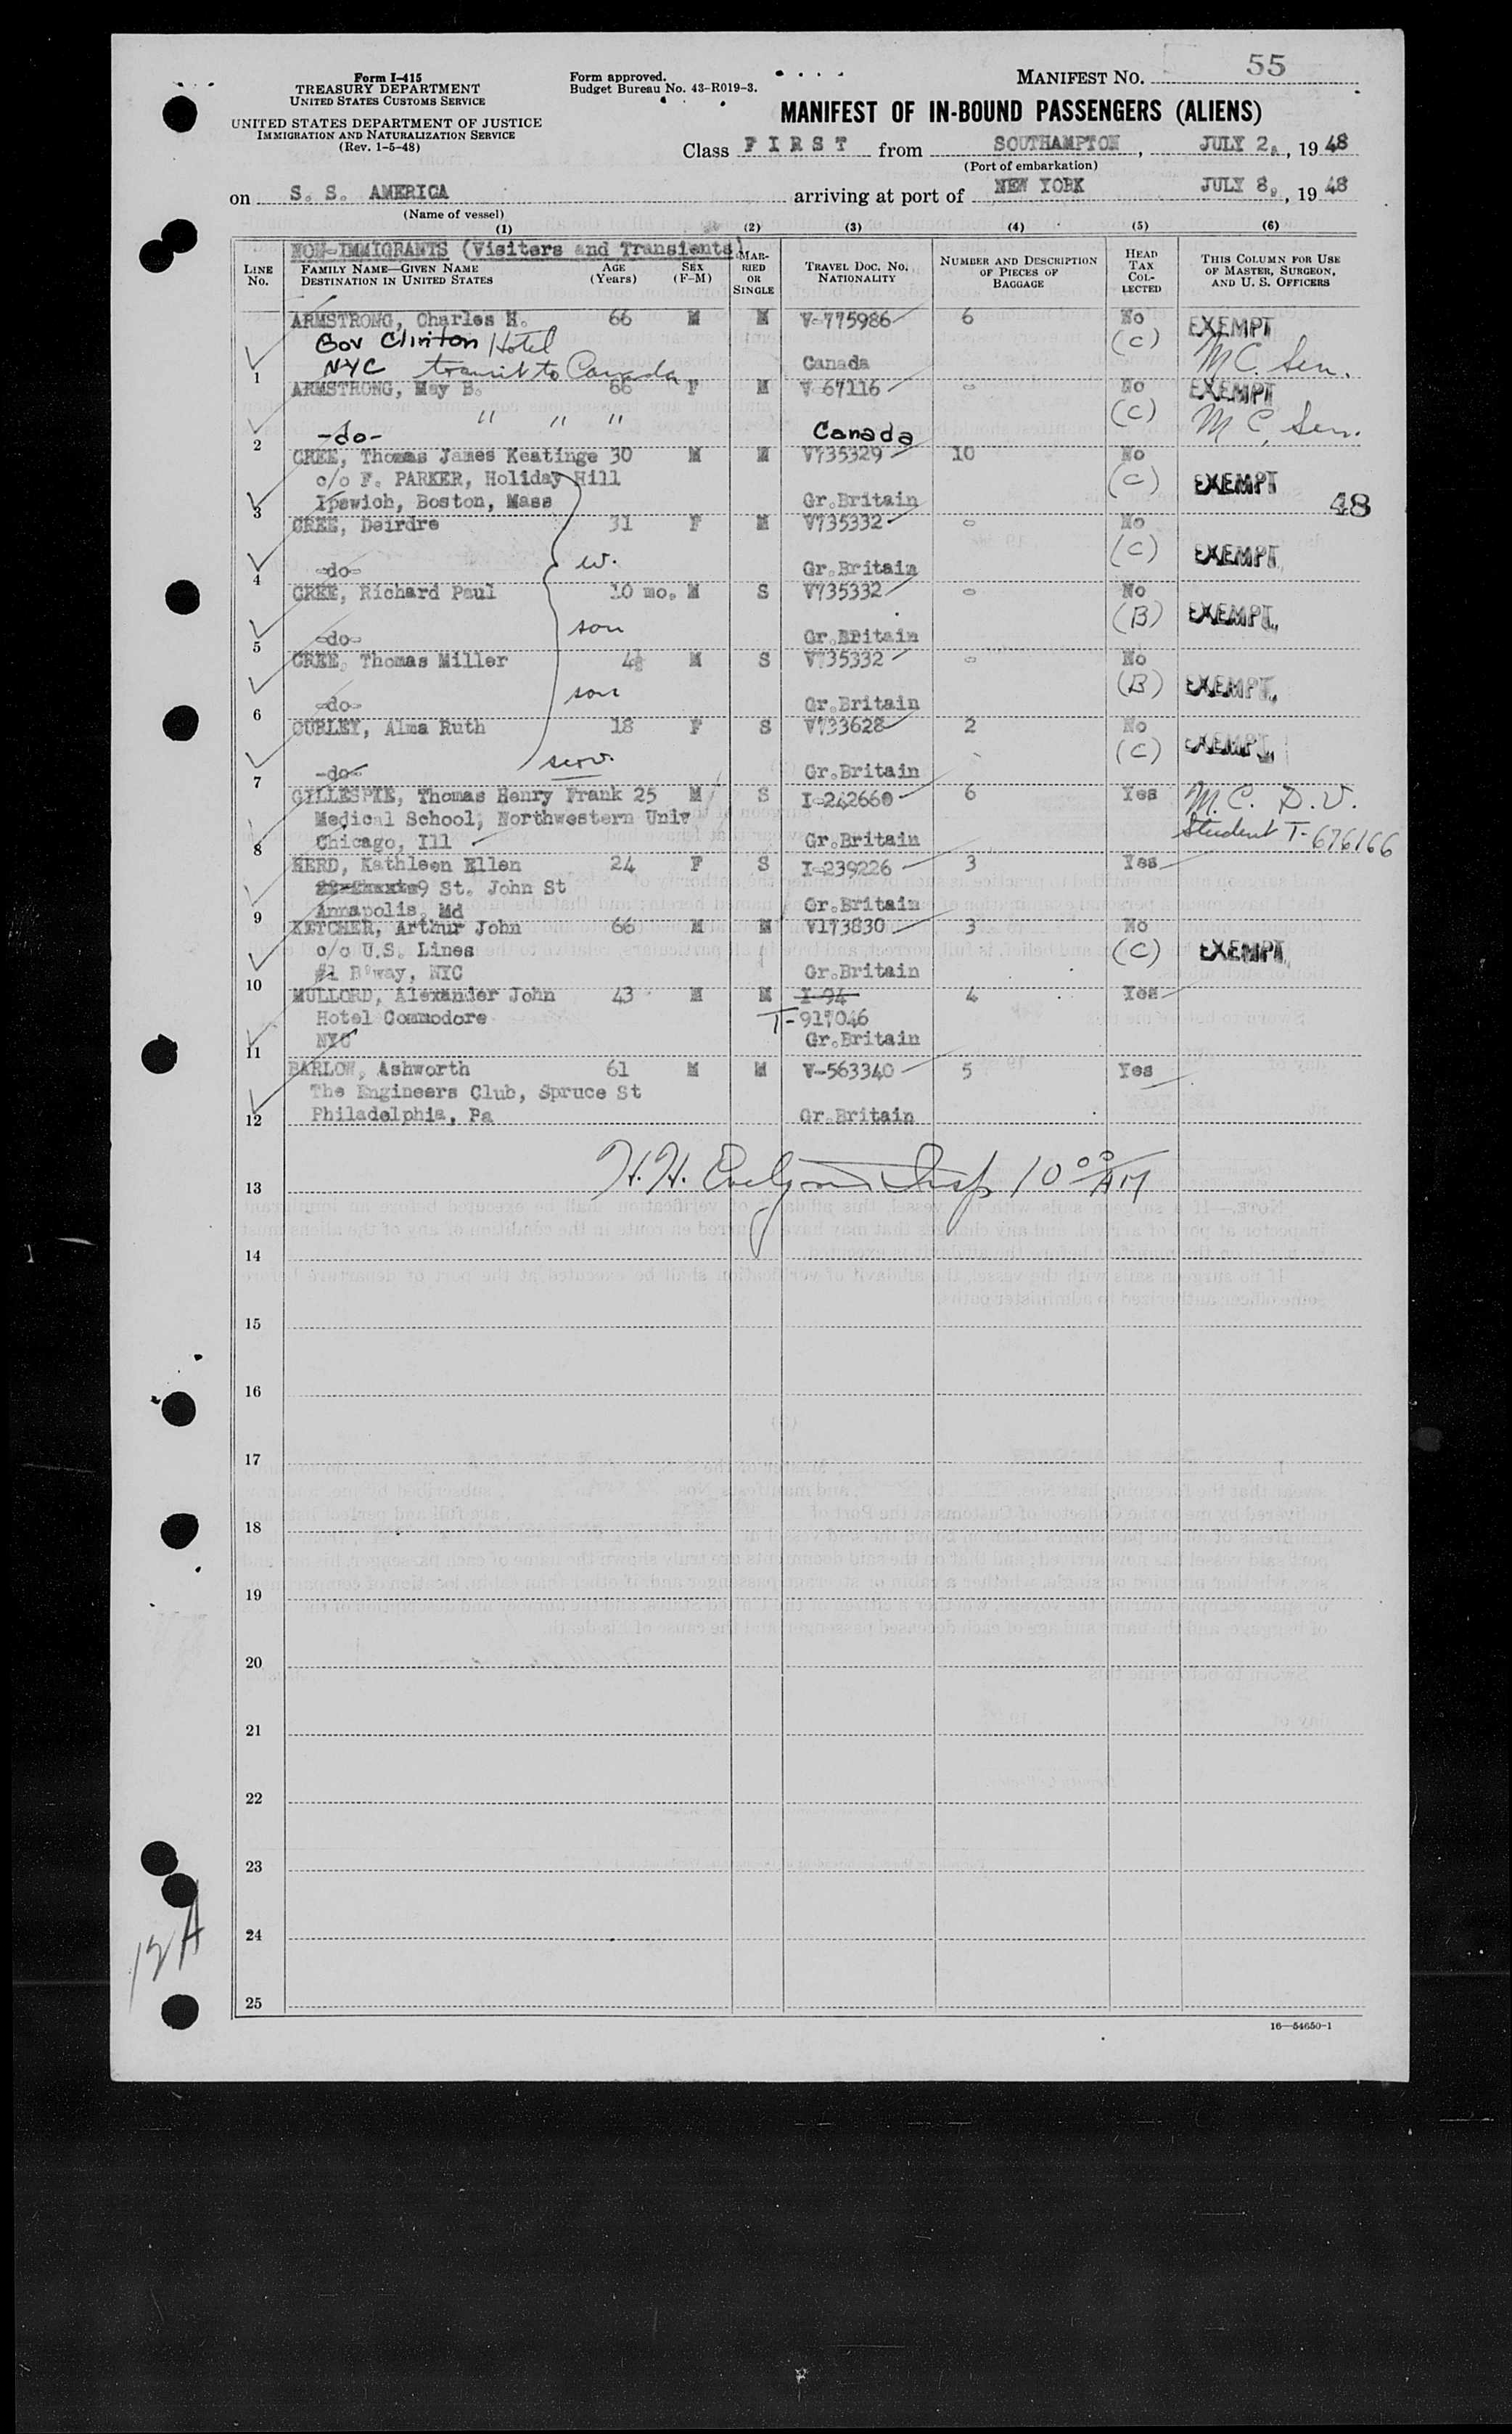 55
Form I-415
TREASURY DEPARTMENT
UNITED STATES CUSTOMS SERVICE
UNITED STATES DEPARTMENT OF JUSTICE
IMMIGRATION AND NATURALIZATION SERVICE
(Rev. 1-5-48)
Form approved.
Budget Bureau No. 43-R019-3.
MANIFEST NO.
MANIFEST OF IN-BOUND PASSENGERS (ALIENS)
Class F I R S T from SOUTHAMPTON, JULY 2, 1948
(Port of embarkation)
on S. S. AMERICA arriving at port of NEW YORK JULY 8, 1948
(Name of vessel)
(1) (2) (3) (4) (5) (6)
NON-IMMIGRANTS (Visiters and Transients)
LINE No. FAMILY NAME—GIVEN NAME DESTINATION IN UNITED STATES AGE (Years) SEX (F-M) MARRIED OR SINGLE TRAVEL DOC. NO. NATIONALITY NUMBER AND DESCRIPTION OF PIECES OF BAGGAGE HEAD TAX COLLECTED THIS COLUMN FOR USE OF MASTER, SURGEON, AND U. S. OFFICERS
ARMSTRONG, Charles H. 66 M M V-775986 6 No EXEMPT
Gov Clinton Hotel (C) M C. Sen.
1 NYC transit to Canada Canada
ARMSTRONG, May B. 66 F M V 67116 - No EXEMPT
" " " (C) M C, Sen.
2 -do- Canada
CREE, Thomas James Keatinge 30 M M V735329 10 No
c/o F. PARKER, Holiday Hill (C) EXEMPT
3 Ipswich, Boston, Mass Gr.Britain 48
CREE, Deirdre 31 F M V735332 - No
w. (C) EXEMPT
4 -do- Gr.Britain
CREE, Richard Paul 10 mo. M S V735332 - No
son (B) EXEMPT
5 -do- Gr.Britain
CREE, Thomas Miller 4½ M S V735332 - No
son (B) EXEMPT
6 -do- Gr.Britain
CURLEY, Alma Ruth 18 F S V733628 2 No
serv. (C) EXEMPT
7 -do- Gr.Britain
GILLESPIE, Thomas Henry Frank 25 M S I-242660 6 Yes M.C. D.V.
Medical School, Northwestern Univ Student T-676166
8 Chicago, Ill Gr.Britain
HERD, Kathleen Ellen 24 F S I-239226 3 Yes
9 St. John St
9 Annapolis, Md Gr.Britain
KETCHER, Arthur John 66 M M V173830 3 No
c/o U.S. Lines (C) EXEMPT
10 #1 B'way, NYC Gr.Britain
MULLORD, Alexander John 43 M M I-94 4 Yes
Hotel Commodore T-917046
11 NYC Gr.Britain
BARLOW, Ashworth 61 M M V-563340 5 Yes
The Engineers Club, Spruce St
12 Philadelphia, Pa Gr.Britain
13 H. H. Insp 10 00 AM
14
15
16
17
18
19
20
21
22
23
24
25
12A
16—54650-1